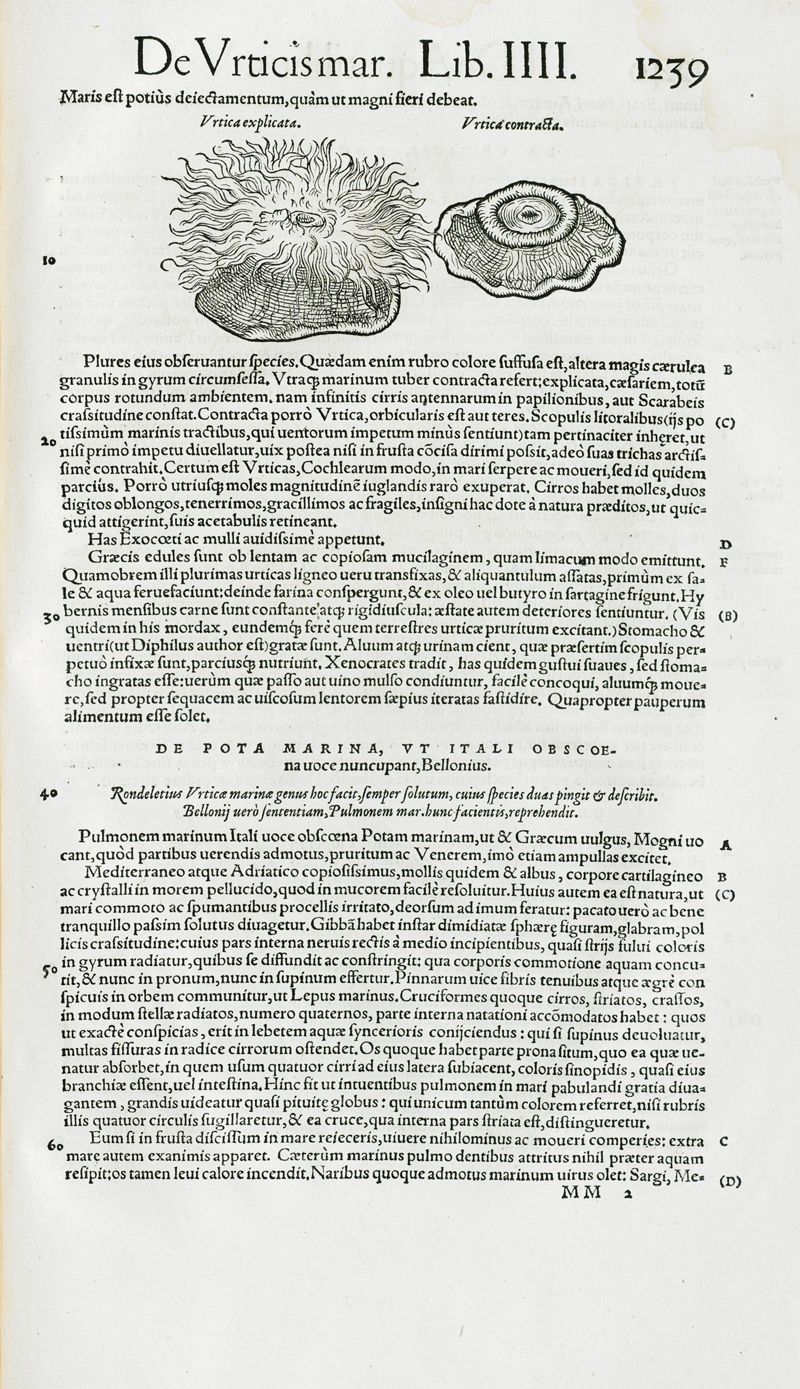 De Vrticis mar. Lib. IIII. 1239
Maris est potiùs deiectamentum, quàm ut magni fieri debeat.
Vrtica explicata. Vrtica contracta.
10
Plures eius obseruantur species. Quædam enim rubro colore suffusa est, altera magis cærulea B
granulis in gyrum circumsessa. Vtraq; marinum tuber contracta refert: explicata, cæsariem, totū
corpus rotundum ambientem. nam infinitis cirris antennarum in papilionibus, aut Scarabeis
crassitudine constat. Contracta porrò Vrtica, orbicularis est aut teres. Scopulis litoralibus (ijs po (C)
20 tissimùm marinis tractibus, qui uentorum impetum minùs sentiunt) tam pertinaciter inhęret, ut
nisi primò impetu diuellatur, uix postea nisi in frusta cōcisa dirimi possit, adeò suas trichas arctis-
simè contrahit. Certum est Vrticas, Cochlearum modo, in mari serpere ac moueri, sed id quidem
parciùs. Porrò utriusq; moles magnitudinē iuglandis rarò exuperat. Cirros habet molles, duos
digitos oblongos, tenerrimos, gracillimos ac fragiles, insigni hac dote à natura præditos, ut quic-
quid attigerint, suis acetabulis retineant.
Has Exocœti ac mulli auidissimè appetunt. D
Græcis edules sunt ob lentam ac copiosam mucilaginem, quam limacum modo emittunt. F
Quamobrem illi plurimas urticas ligneo ueru transfixas, & aliquantulum assatas, primùm ex sa-
le & aqua feruefaciunt: deinde farina conspergunt, & ex oleo uel butyro in sartagine frigunt. Hy
30 bernis mensibus carne sunt constante atq; rigidiuscula: æstate autem deteriores sentiuntur. (Vis (B)
quidem in his mordax, eundemq́; ferè quem terrestres urticæ pruritum excitant.) Stomacho &
uentri (ut Diphilus author est) gratæ sunt. Aluum atq; urinam cient, quæ præsertim scopulis per-
petuò infixæ sunt, parciusq́; nutriunt. Xenocrates tradit, has quidem gustui suaues, sed stoma-
cho ingratas esse: uerùm quæ passo aut uino mulso condiuntur, facilè concoqui, aluumq́; moue-
re, sed propter sequacem ac uiscosum lentorem sæpius iteratas fastidire. Quapropter pauperum
alimentum esse solet.
DE POTA MARINA, VT ITALI OBSCOE-
na uoce nuncupant, Bellonius.
40 Rondeletius Vrticæ marinæ genus hoc facit, semper solutum, cuius species duas pingit & describit.
Bellonij uerò sententiam, Pulmonem mar. hunc facientis, reprehendit.
Pulmonem marinum Itali uoce obscœna Potam marinam, ut & Græcum uulgus, Mogni uo A
cant, quòd partibus uerendis admotus, pruritum ac Venerem, imò etiam ampullas excitet.
Mediterraneo atque Adriatico copiosissimus, mollis quidem & albus, corpore cartilagineo B
ac crystalli in morem pellucido, quod in mucorem facilè resoluitur. Huius autem ea est natura, ut (C)
mari commoto ac spumantibus procellis irritato, deorsum ad imum feratur: pacato uerò ac bene
tranquillo passim solutus diuagetur. Gibbā habet instar dimidiatæ sphærę figuram, glabram, pol
licis crassitudine: cuius pars interna neruis rectis à medio incipientibus, quasi strijs fului coloris
50 in gyrum radiatur, quibus se diffundit ac constringit: qua corporis commotione aquam concu-
tit, & nunc in pronum, nunc in supinum effertur. Pinnarum uice fibris tenuibus atque ægrè con
spicuis in orbem communitur, ut Lepus marinus. Cruciformes quoque cirros, striatos, crassos,
in modum stellæ radiatos, numero quaternos, parte interna natationi accōmodatos habet: quos
ut exactè conspicias, erit in lebetem aquæ syncerioris conijciendus: qui si supinus deuoluatur,
multas fissuras in radice cirrorum ostendet. Os quoque habet parte prona situm, quo ea quæ ue-
natur absorbet, in quem usum quatuor cirri ad eius latera subiacent, coloris sinopidis, quasi eius
branchiæ essent, uel intestina. Hinc fit ut intuentibus pulmonem in mari pabulandi gratia diua-
gantem, grandis uideatur quasi pituitę globus: qui unicum tantùm colorem referret, nisi rubris
illis quatuor circulis sugillaretur, & ea cruce, qua interna pars striata est, distingueretur.
60 Eum si in frusta discissum in mare reieceris, uiuere nihilominus ac moueri comperies: extra C
mare autem exanimis apparet. Cæterùm marinus pulmo dentibus attritus nihil præter aquam
resipit: os tamen leui calore incendit. Naribus quoque admotus marinum uirus olet: Sargi, Me- (D)
MM 2